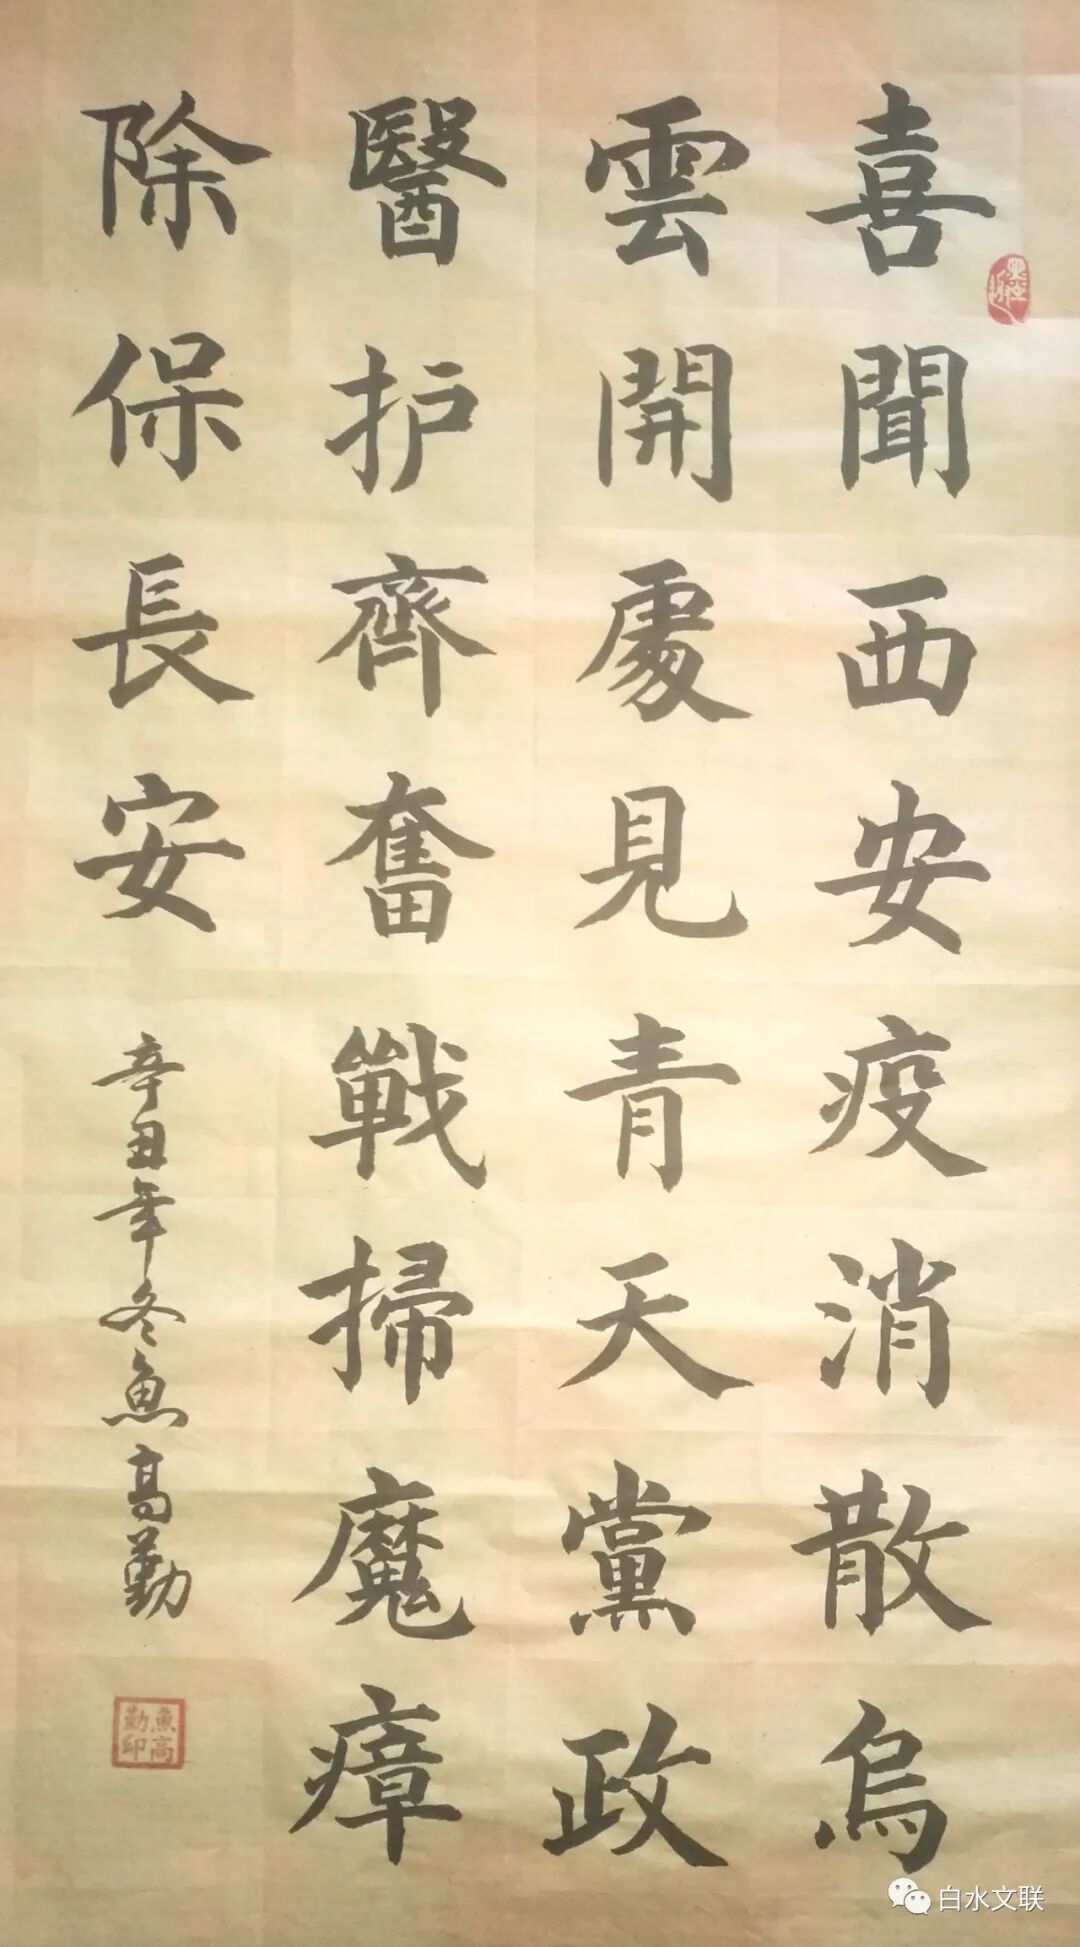 喜聞西安疫消散烏
雲開處見青天黨政
醫护齊奮戰掃魔瘴
除保長安
辛丑年冬魚高勤
魚高勤印
白水文联